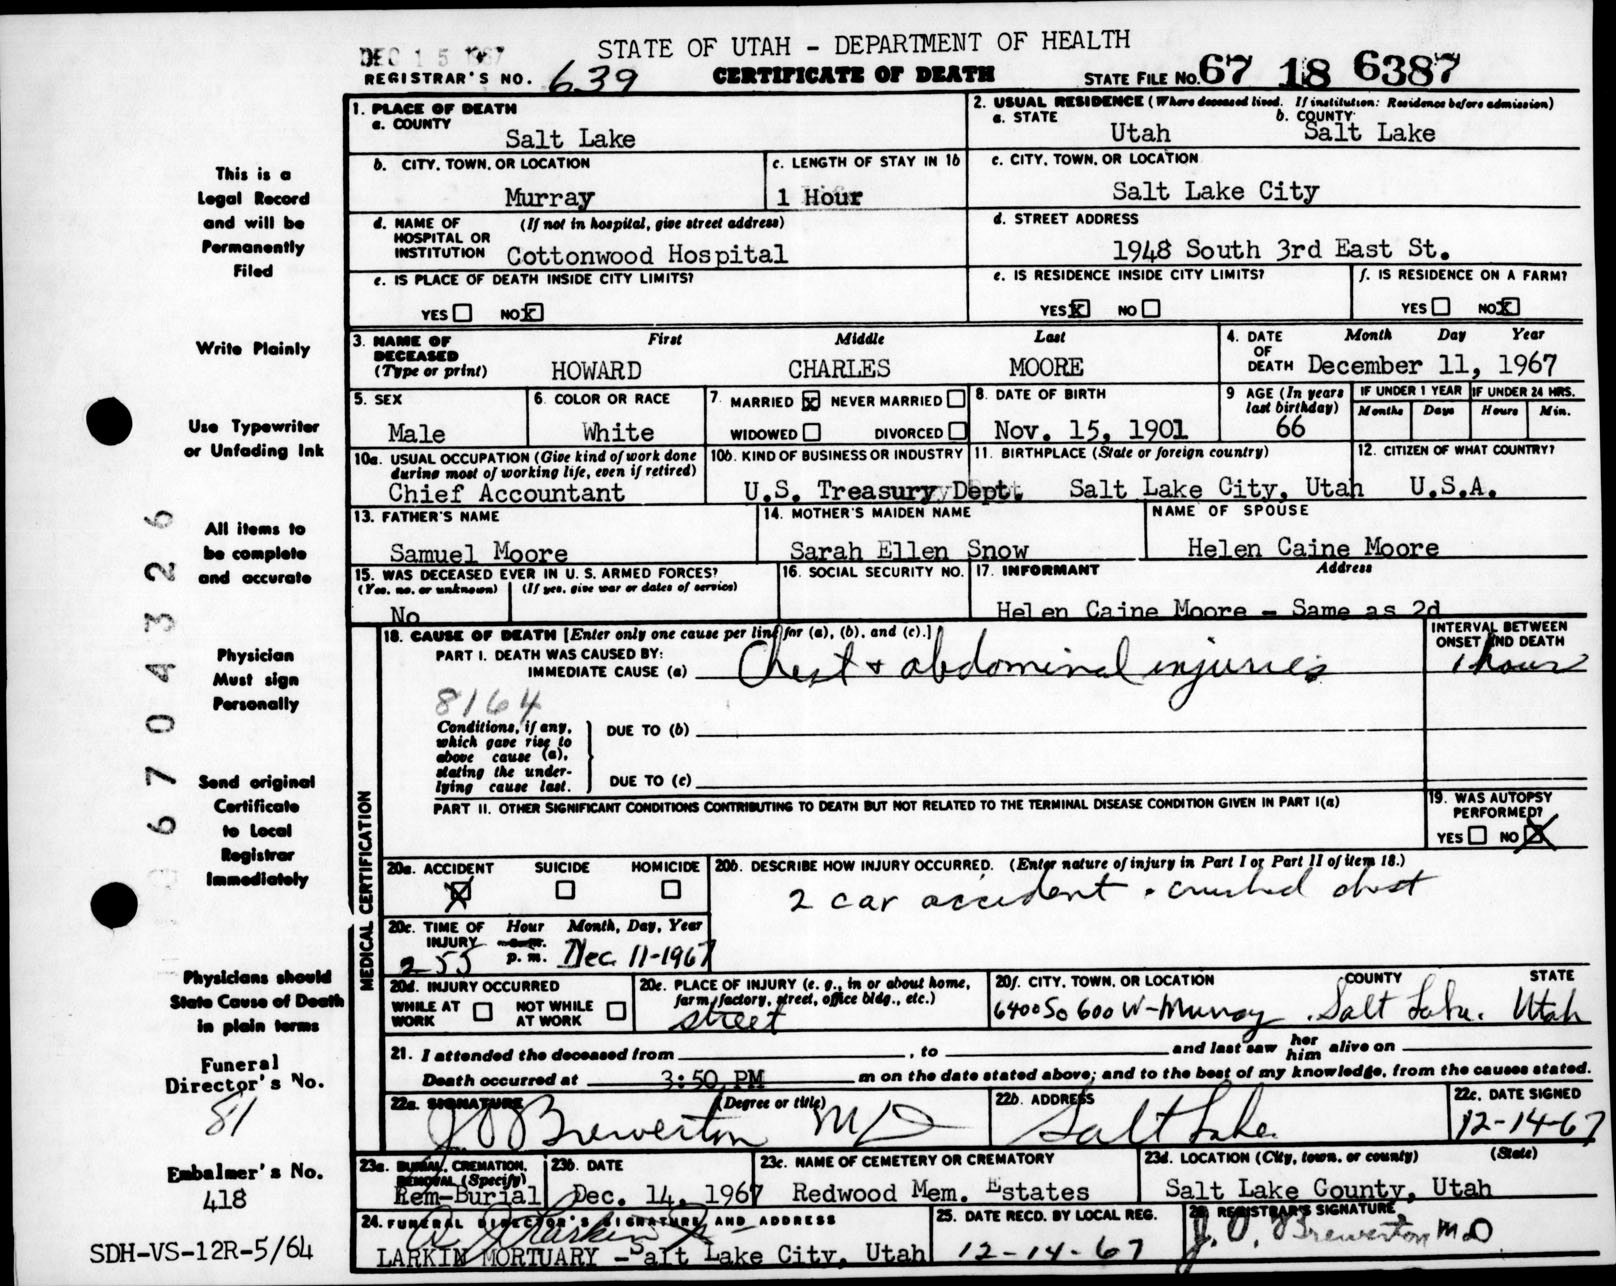 DEC 15 1967
STATE OF UTAH - DEPARTMENT OF HEALTH
REGISTRAR'S NO. 639 CERTIFICATE OF DEATH STATE FILE NO. 67 18 6387
1. PLACE OF DEATH
a. COUNTY
Salt Lake
2. USUAL RESIDENCE (Where deceased lived. If institution: Residence before admission)
a. STATE b. COUNTY
Utah Salt Lake
b. CITY, TOWN, OR LOCATION
Murray
c. LENGTH OF STAY IN 1b
1 Hour
c. CITY, TOWN, OR LOCATION
Salt Lake City
d. NAME OF (If not in hospital, give street address)
HOSPITAL OR
INSTITUTION Cottonwood Hospital
d. STREET ADDRESS
1948 South 3rd East St.
e. IS PLACE OF DEATH INSIDE CITY LIMITS?
YES NO X
e. IS RESIDENCE INSIDE CITY LIMITS?
YES X NO
f. IS RESIDENCE ON A FARM?
YES NO X
3. NAME OF First Middle Last
DECEASED
(Type or print) HOWARD CHARLES MOORE
4. DATE Month Day Year
OF
DEATH December 11, 1967
5. SEX
Male
6. COLOR OR RACE
White
7. MARRIED X NEVER MARRIED
WIDOWED DIVORCED
8. DATE OF BIRTH
Nov. 15, 1901
9 AGE (In years
last birthday)
66
IF UNDER 1 YEAR IF UNDER 24 HRS.
Months Days Hours Min.
10a. USUAL OCCUPATION (Give kind of work done
during most of working life, even if retired)
Chief Accountant
10b. KIND OF BUSINESS OR INDUSTRY
U.S. Treasury Dept.
11. BIRTHPLACE (State or foreign country)
Salt Lake City, Utah
12. CITIZEN OF WHAT COUNTRY?
U.S.A.
13. FATHER'S NAME
Samuel Moore
14. MOTHER'S MAIDEN NAME
Sarah Ellen Snow
NAME OF SPOUSE
Helen Caine Moore
15. WAS DECEASED EVER IN U.S. ARMED FORCES?
(Yes, no, or unknown) (If yes, give war or dates of service)
No
16. SOCIAL SECURITY NO.
17. INFORMANT Address
Helen Caine Moore - Same as 2d
MEDICAL CERTIFICATION
18. CAUSE OF DEATH [Enter only one cause per line for (a), (b), and (c).]
INTERVAL BETWEEN
ONSET AND DEATH
PART I. DEATH WAS CAUSED BY:
IMMEDIATE CAUSE (a) Chest & abdominal injuries 1 hour
8164
Conditions, if any,
which gave rise to
above cause (a),
stating the under-
lying cause last.
DUE TO (b)
DUE TO (c)
PART II. OTHER SIGNIFICANT CONDITIONS CONTRIBUTING TO DEATH BUT NOT RELATED TO THE TERMINAL DISEASE CONDITION GIVEN IN PART I(a)
19. WAS AUTOPSY
PERFORMED?
YES NO X
20a. ACCIDENT SUICIDE HOMICIDE
X
20b. DESCRIBE HOW INJURY OCCURRED. (Enter nature of injury in Part I or Part II of item 18.)
2 car accident - crushed chest
20c. TIME OF Hour Month, Day, Year
INJURY a.m.
2 55 p.m. Dec. 11-1967
20d. INJURY OCCURRED
WHILE AT WORK NOT WHILE AT WORK
20e. PLACE OF INJURY (e. g., in or about home,
farm, factory, street, office bldg., etc.)
street
20f. CITY, TOWN, OR LOCATION COUNTY STATE
6400 So 600 W - Murray Salt Lake Utah
21. I attended the deceased from , to and last saw her him alive on
Death occurred at 3:50 PM m on the date stated above; and to the best of my knowledge, from the causes stated.
22a. SIGNATURE (Degree or title)
J O Brewerton MD
22b. ADDRESS
Salt Lake
22c. DATE SIGNED
12-14-67
23a. BURIAL, CREMATION,
REMOVAL (Specify)
Rem-Burial
23b. DATE
Dec. 14, 1967
23c. NAME OF CEMETERY OR CREMATORY
Redwood Mem. Estates
23d. LOCATION (City, town, or county) (State)
Salt Lake County, Utah
24. FUNERAL DIRECTOR'S SIGNATURE AND ADDRESS
LARKIN MORTUARY - Salt Lake City, Utah
25. DATE RECD. BY LOCAL REG.
12-14-67
26. REGISTRAR'S SIGNATURE
J. O. Brewerton MD
This is a
Legal Record
and will be
Permanently
Filed
Write Plainly
Use Typewriter
or Unfading Ink
All items to
be complete
and accurate
Physician
Must sign
Personally
Send original
Certificate
to Local
Registrar
Immediately
Physicians should
State Cause of Death
in plain terms
Funeral
Director's No.
81
Embalmer's No.
418
SDH-VS-12R-5/64
6704326